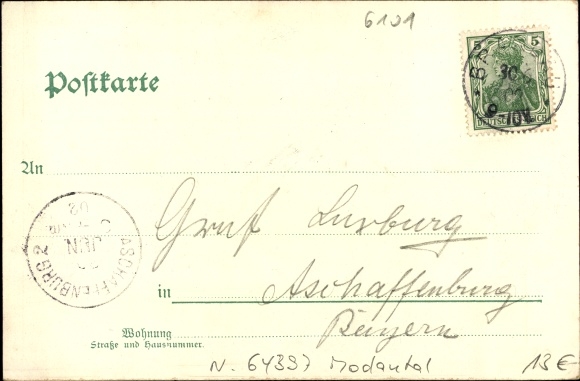 6101
5 5
30
9-10V.
DEUTSCHES REICH
Postkarte
An
ASCHAFFENBURG 2
JUN
02
Graf Luxburg
in Aschaffenburg
Bayern
Wohnung
Straße und Hausnummer.
N. 64397 Modautal 13€